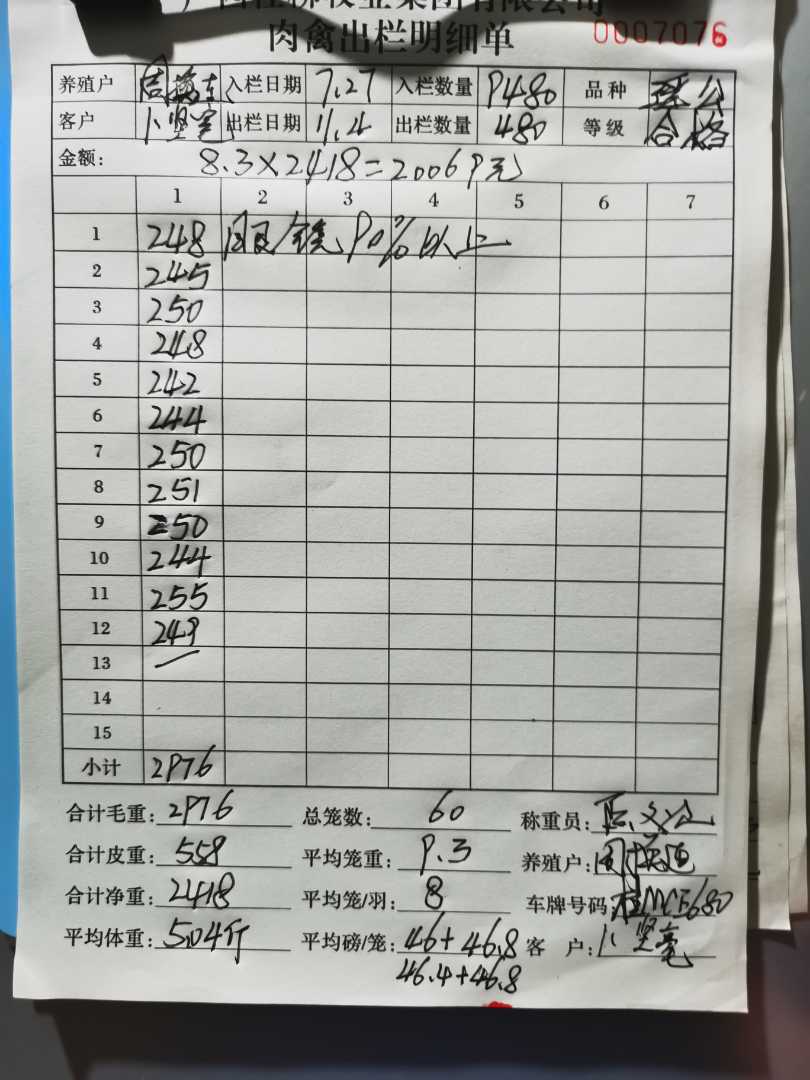 肉禽出栏明细单 0007076
养殖户 入栏日期 7.27 入栏数量 9480 品种
客户 卜坚毫 出栏日期 11.4 出栏数量 480 等级 合格
金额: 8.3×2418=20069元
1 2 3 4 5 6 7
1 248 90%以上
2 245
3 250
4 248
5 242
6 244
7 250
8 251
9 250
10 244
11 255
12 249
13 —
14
15
小计 2976
合计毛重: 2976 总笼数: 60 称重员:
合计皮重: 558 平均笼重: 9.3 养殖户:
合计净重: 2418 平均笼/羽: 8 车牌号码:
平均体重: 5.04斤 平均磅/笼: 46+46.8 客户: 卜坚毫
46.4+46.8